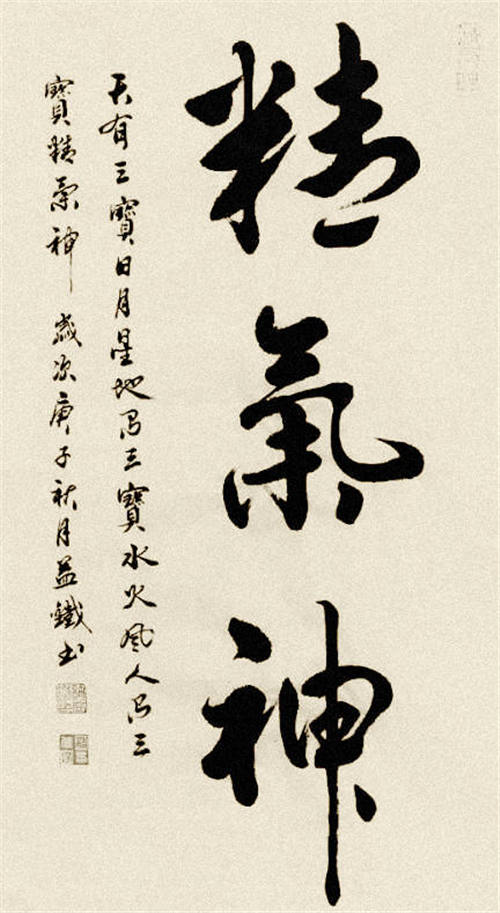 精氣神
天有三寶日月星地有三寶水火風人有三
寶精氣神 歲次庚子秋月益鐵书